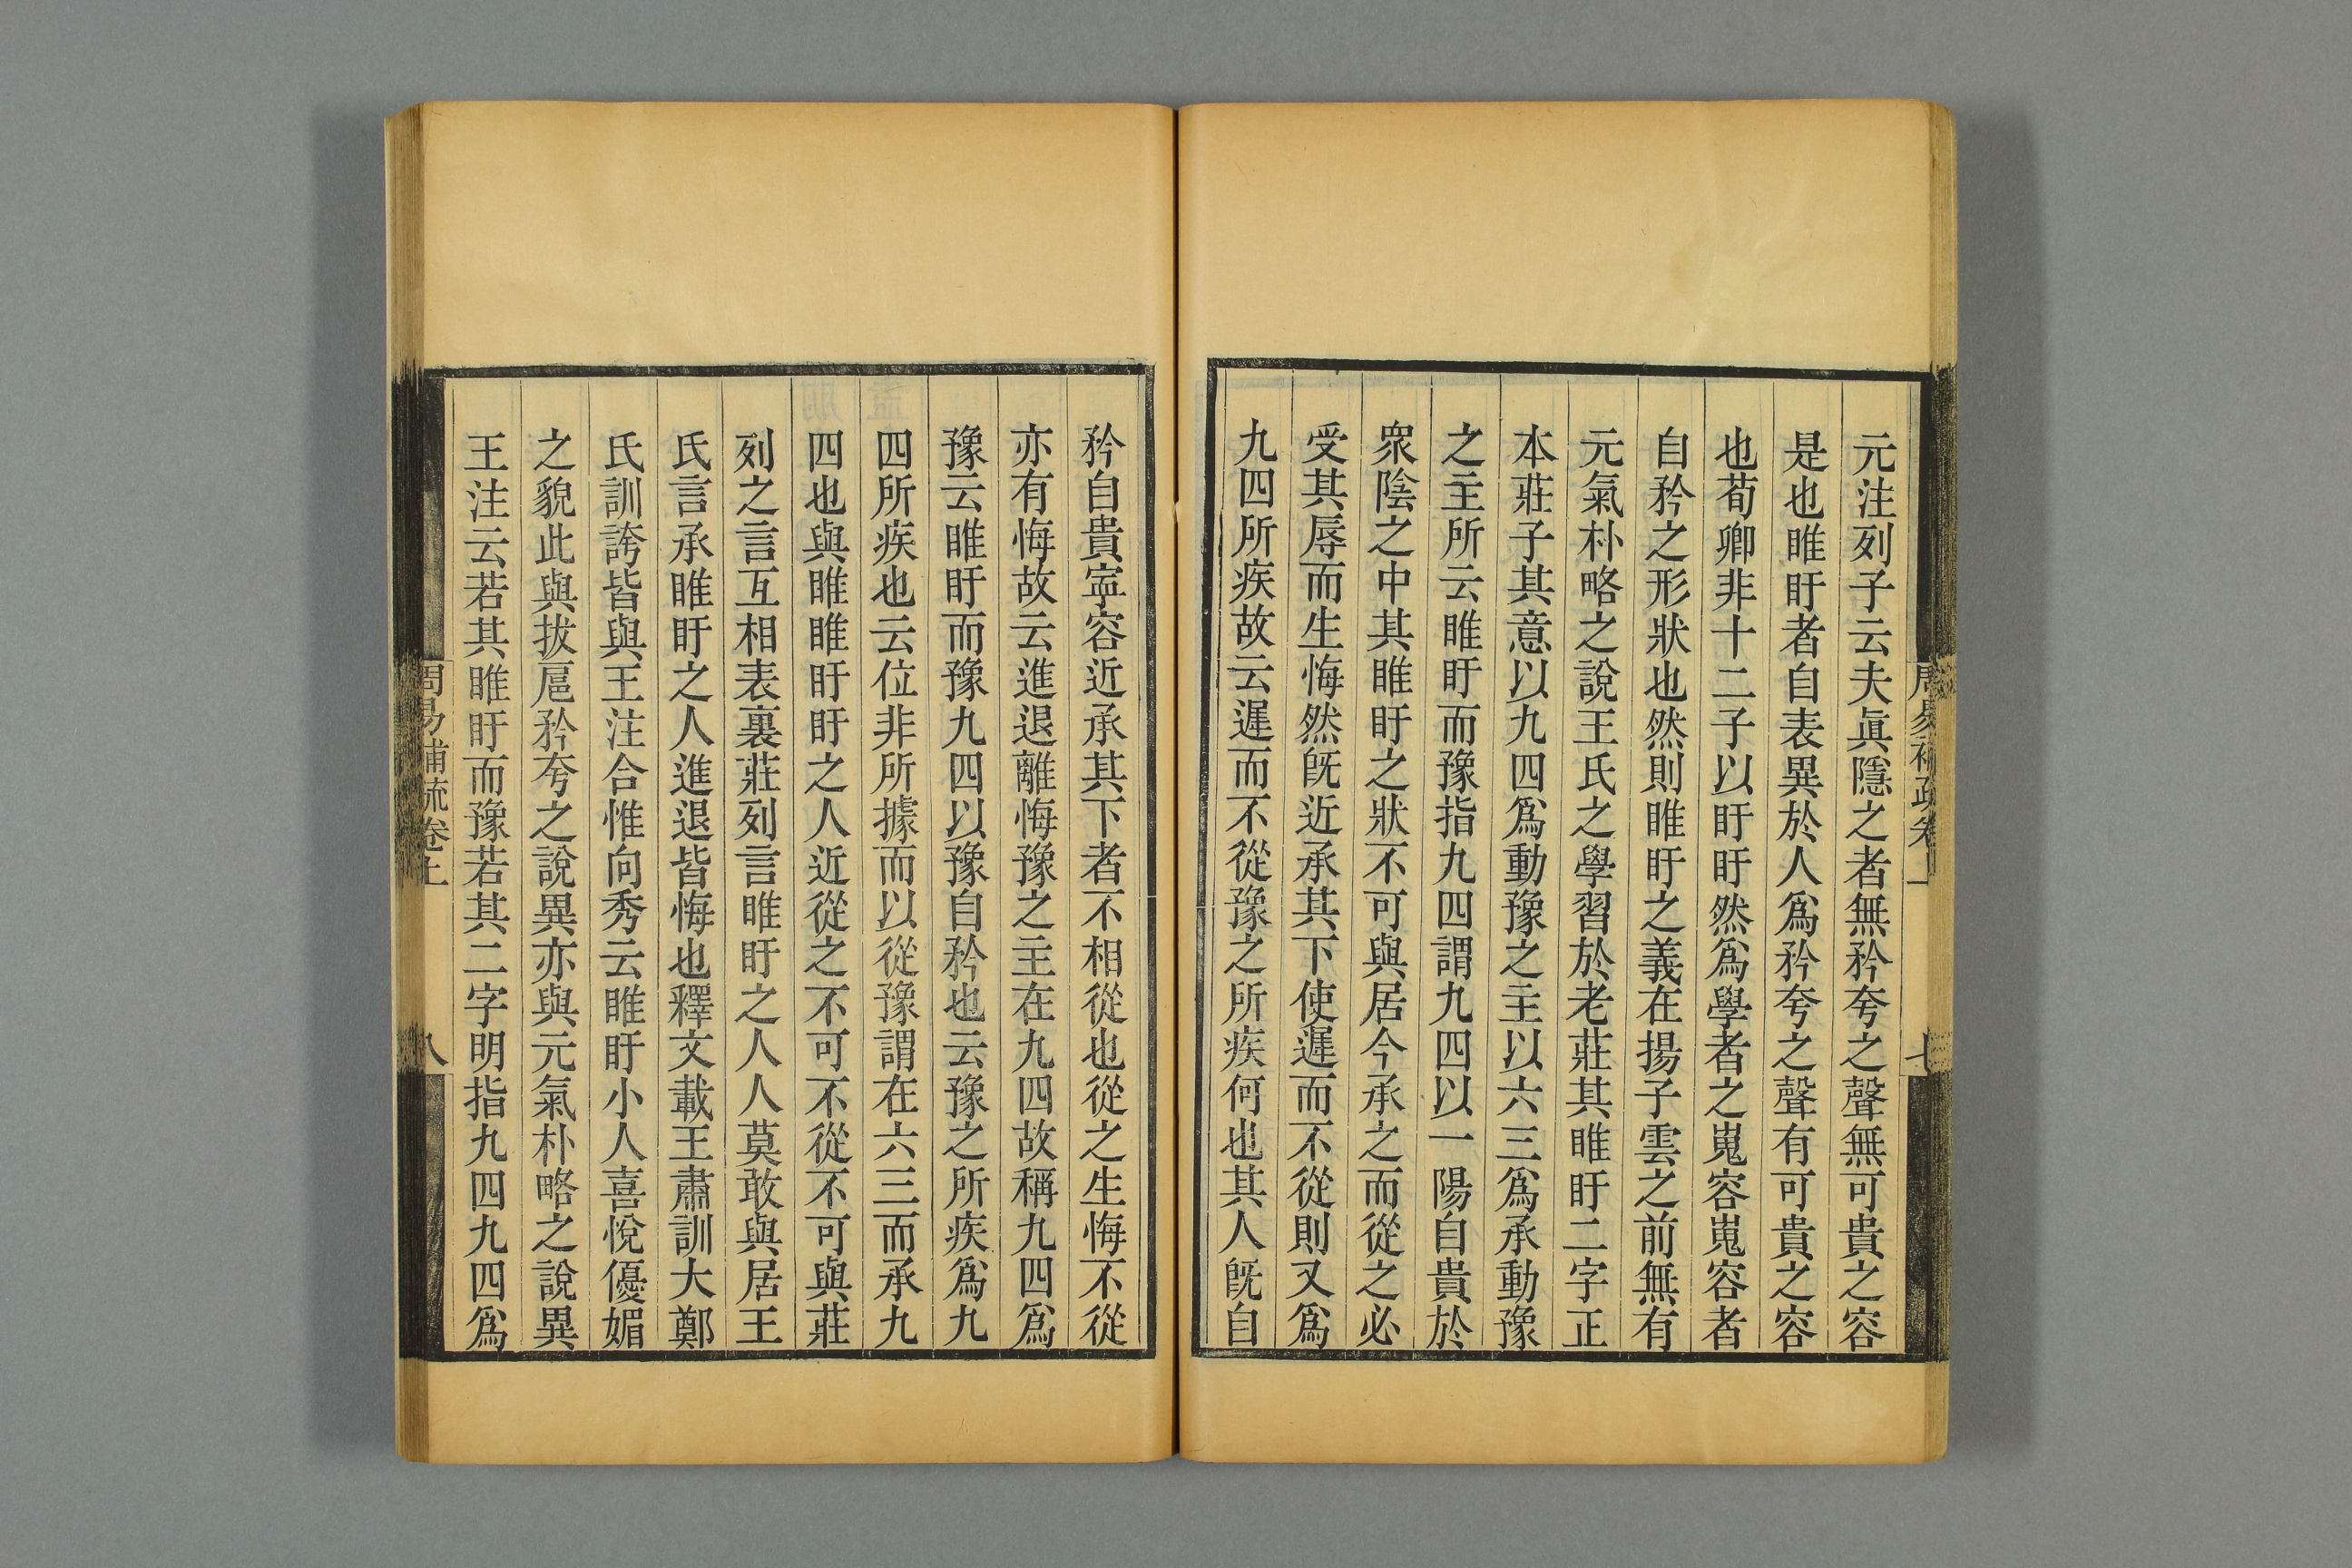 元注列子云夫眞隱之者無矜夸之聲無可貴之容
是也睢盱者自表異於人爲矜夸之聲有可貴之容
也荀卿非十二子以盱盱然爲學者之嵬容嵬容者
自矜之形狀也然則睢盱之義在揚子雲之前無有
元氣朴略之說王氏之學習於老莊其睢盱二字正
本莊子其意以九四爲動豫之主以六三爲承動豫
之主所云睢盱而豫指九四謂九四以一陽自貴於
衆陰之中其睢盱之狀不可與居今承之而從之必
受其辱而生悔然旣近承其下使遲而不從則又爲
九四所疾故云遲而不從豫之所疾何也其人旣自
矜自貴寍容近承其下者不相從也從之生悔不從
亦有悔故云進退離悔豫之主在九四故稱九四爲
豫云睢盱而豫九四以豫自矜也云豫之所疾爲九
四所疾也云位非所據而以從豫謂在六三而承九
四也與睢睢盱盱之人近從之不可不從不可與莊
列之言互相表裏莊列言睢盱之人人莫敢與居王
氏言承睢盱之人進退皆悔也釋文載王肅訓大鄭
氏訓誇皆與王注合惟向秀云睢盱小人喜悅優媚
之貌此與拔扈矜夸之說異亦與元氣朴略之說異
王注云若其睢盱而豫若其二字明指九四九四爲
周易補疏卷上
八